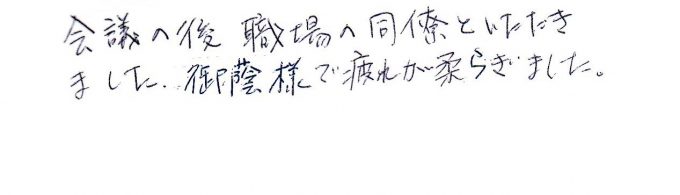 会議の後 職場の同僚といただき
ました。御蔭様で疲れが柔らぎました。